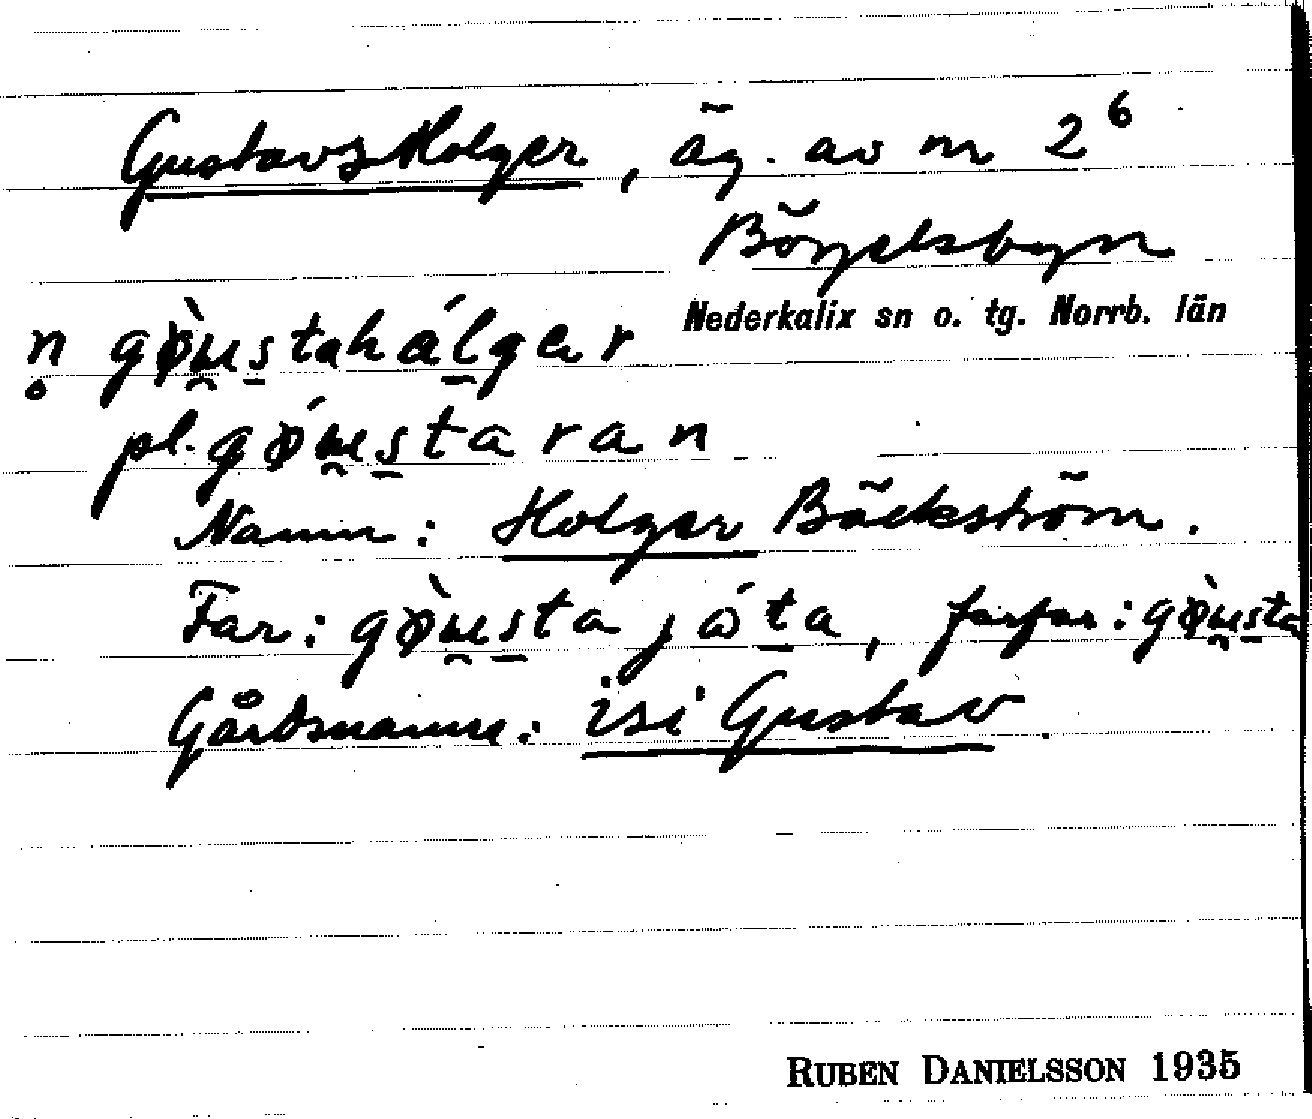 GustavsHolger, äg. av nr 2⁶
Börjelsbyn
Nederkalix sn o. tg. Norrb. län
n̥ gø̀u̯s̲tahál̲gər
pl. gǿu̯s̲taran
Namn: Holger Bäckström.
Far: gø̀u̯s̲ta jó̀t̲a, farfar: gø̀u̯s̲ta
Gårdsnamn: isi Gustav
RUBEN DANIELSSON 1935